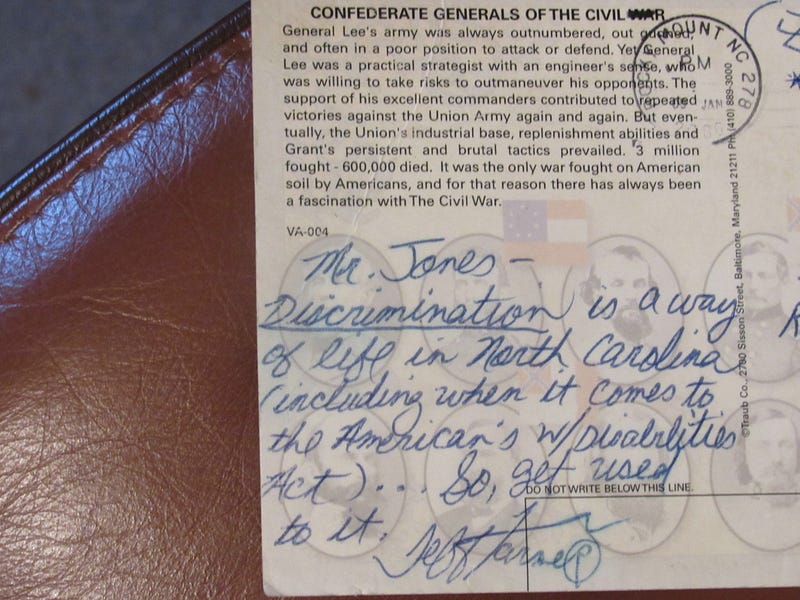 CONFEDERATE GENERALS OF THE CIVIL WAR
General Lee's army was always outnumbered, out gunned,
and often in a poor position to attack or defend. Yet General
Lee was a practical strategist with an engineer's sense, who
was willing to take risks to outmaneuver his opponents. The
support of his excellent commanders contributed to repeated
victories against the Union Army again and again. But even-
tually, the Union's industrial base, replenishment abilities and
Grant's persistent and brutal tactics prevailed. 3 million
fought - 600,000 died. It was the only war fought on American
soil by Americans, and for that reason there has always been
a fascination with The Civil War.
VA-004
ROCKY MOUNT NC 278
PM
JAN
©Traub Co., 2700 Sisson Street, Baltimore, Maryland 21211 Ph: (410) 889-3000
Mr. Jones -
Discrimination is a way
of life in North Carolina
(including when it comes to
the American's w/Disabilities
Act)... So, get used
to it.
DO NOT WRITE BELOW THIS LINE.
Jeff